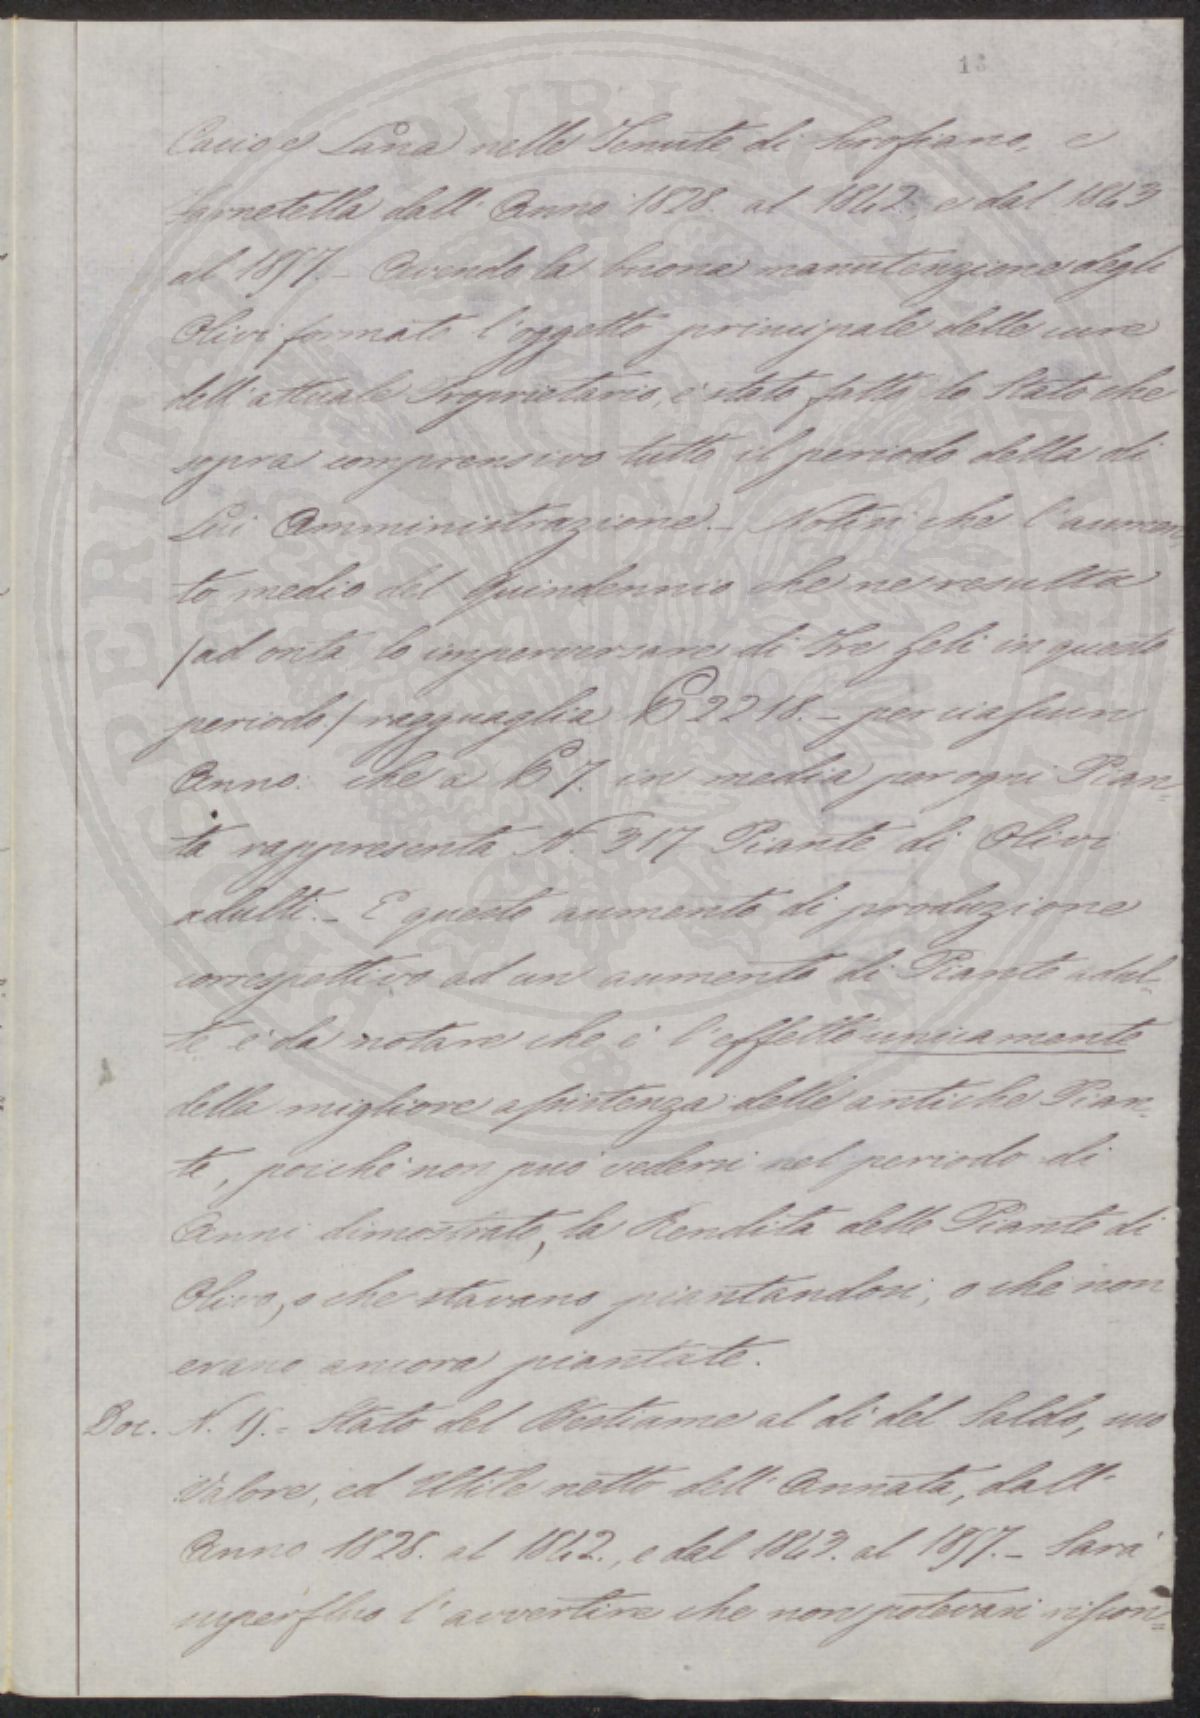 13
Cacio e Lana nelle Tenute di Scrofiano, e
Farnetella dall'Anno 1828. al 1842. e dal 1843
al 1857. – Avendo la buona manutenzione degli
Olivi formato l'oggetto principale delle cure
dell'attuale Proprietario, è stato fatto lo Stato che
sopra comprensivo tutto il periodo della di
Lui Amministrazione. – Notisi che l'aumen
to medio del Quindennio che ne resulta
/ad onta lo imperversare di Tre Geli in questo
periodo/ ragguaglia 2218. – per ciascun
Anno: che a 7. in media per ogni Pian=
ta rappresenta N. 317 Piante di Olivi
adulti. – E questo aumento di produzione
correspettivo ad un aumento di Piante adul=
te è da notare che è l'effetto unicamente
della migliore assistenza delle antiche Pian=
te, poichè non può vedersi nel periodo di
Anni dimostrato, la Rendita delle Piante di
Olivo, o che stavano piantandosi, o che non
erano ancora piantate.
Doc. N. 15. = Stato del Bestiame al di del Saldo, suo
Valore, ed Utile netto dell'Annata, dall'
Anno 1828. al 1842., e dal 1843. al 1857. – Sarà
superfluo l'avvertire che non potevasi riscon=
PVBLICAE
PROSPERITATI